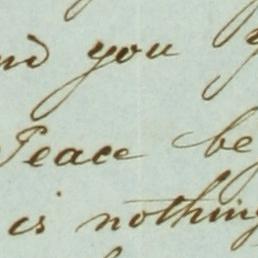 you
Peace be
is nothing